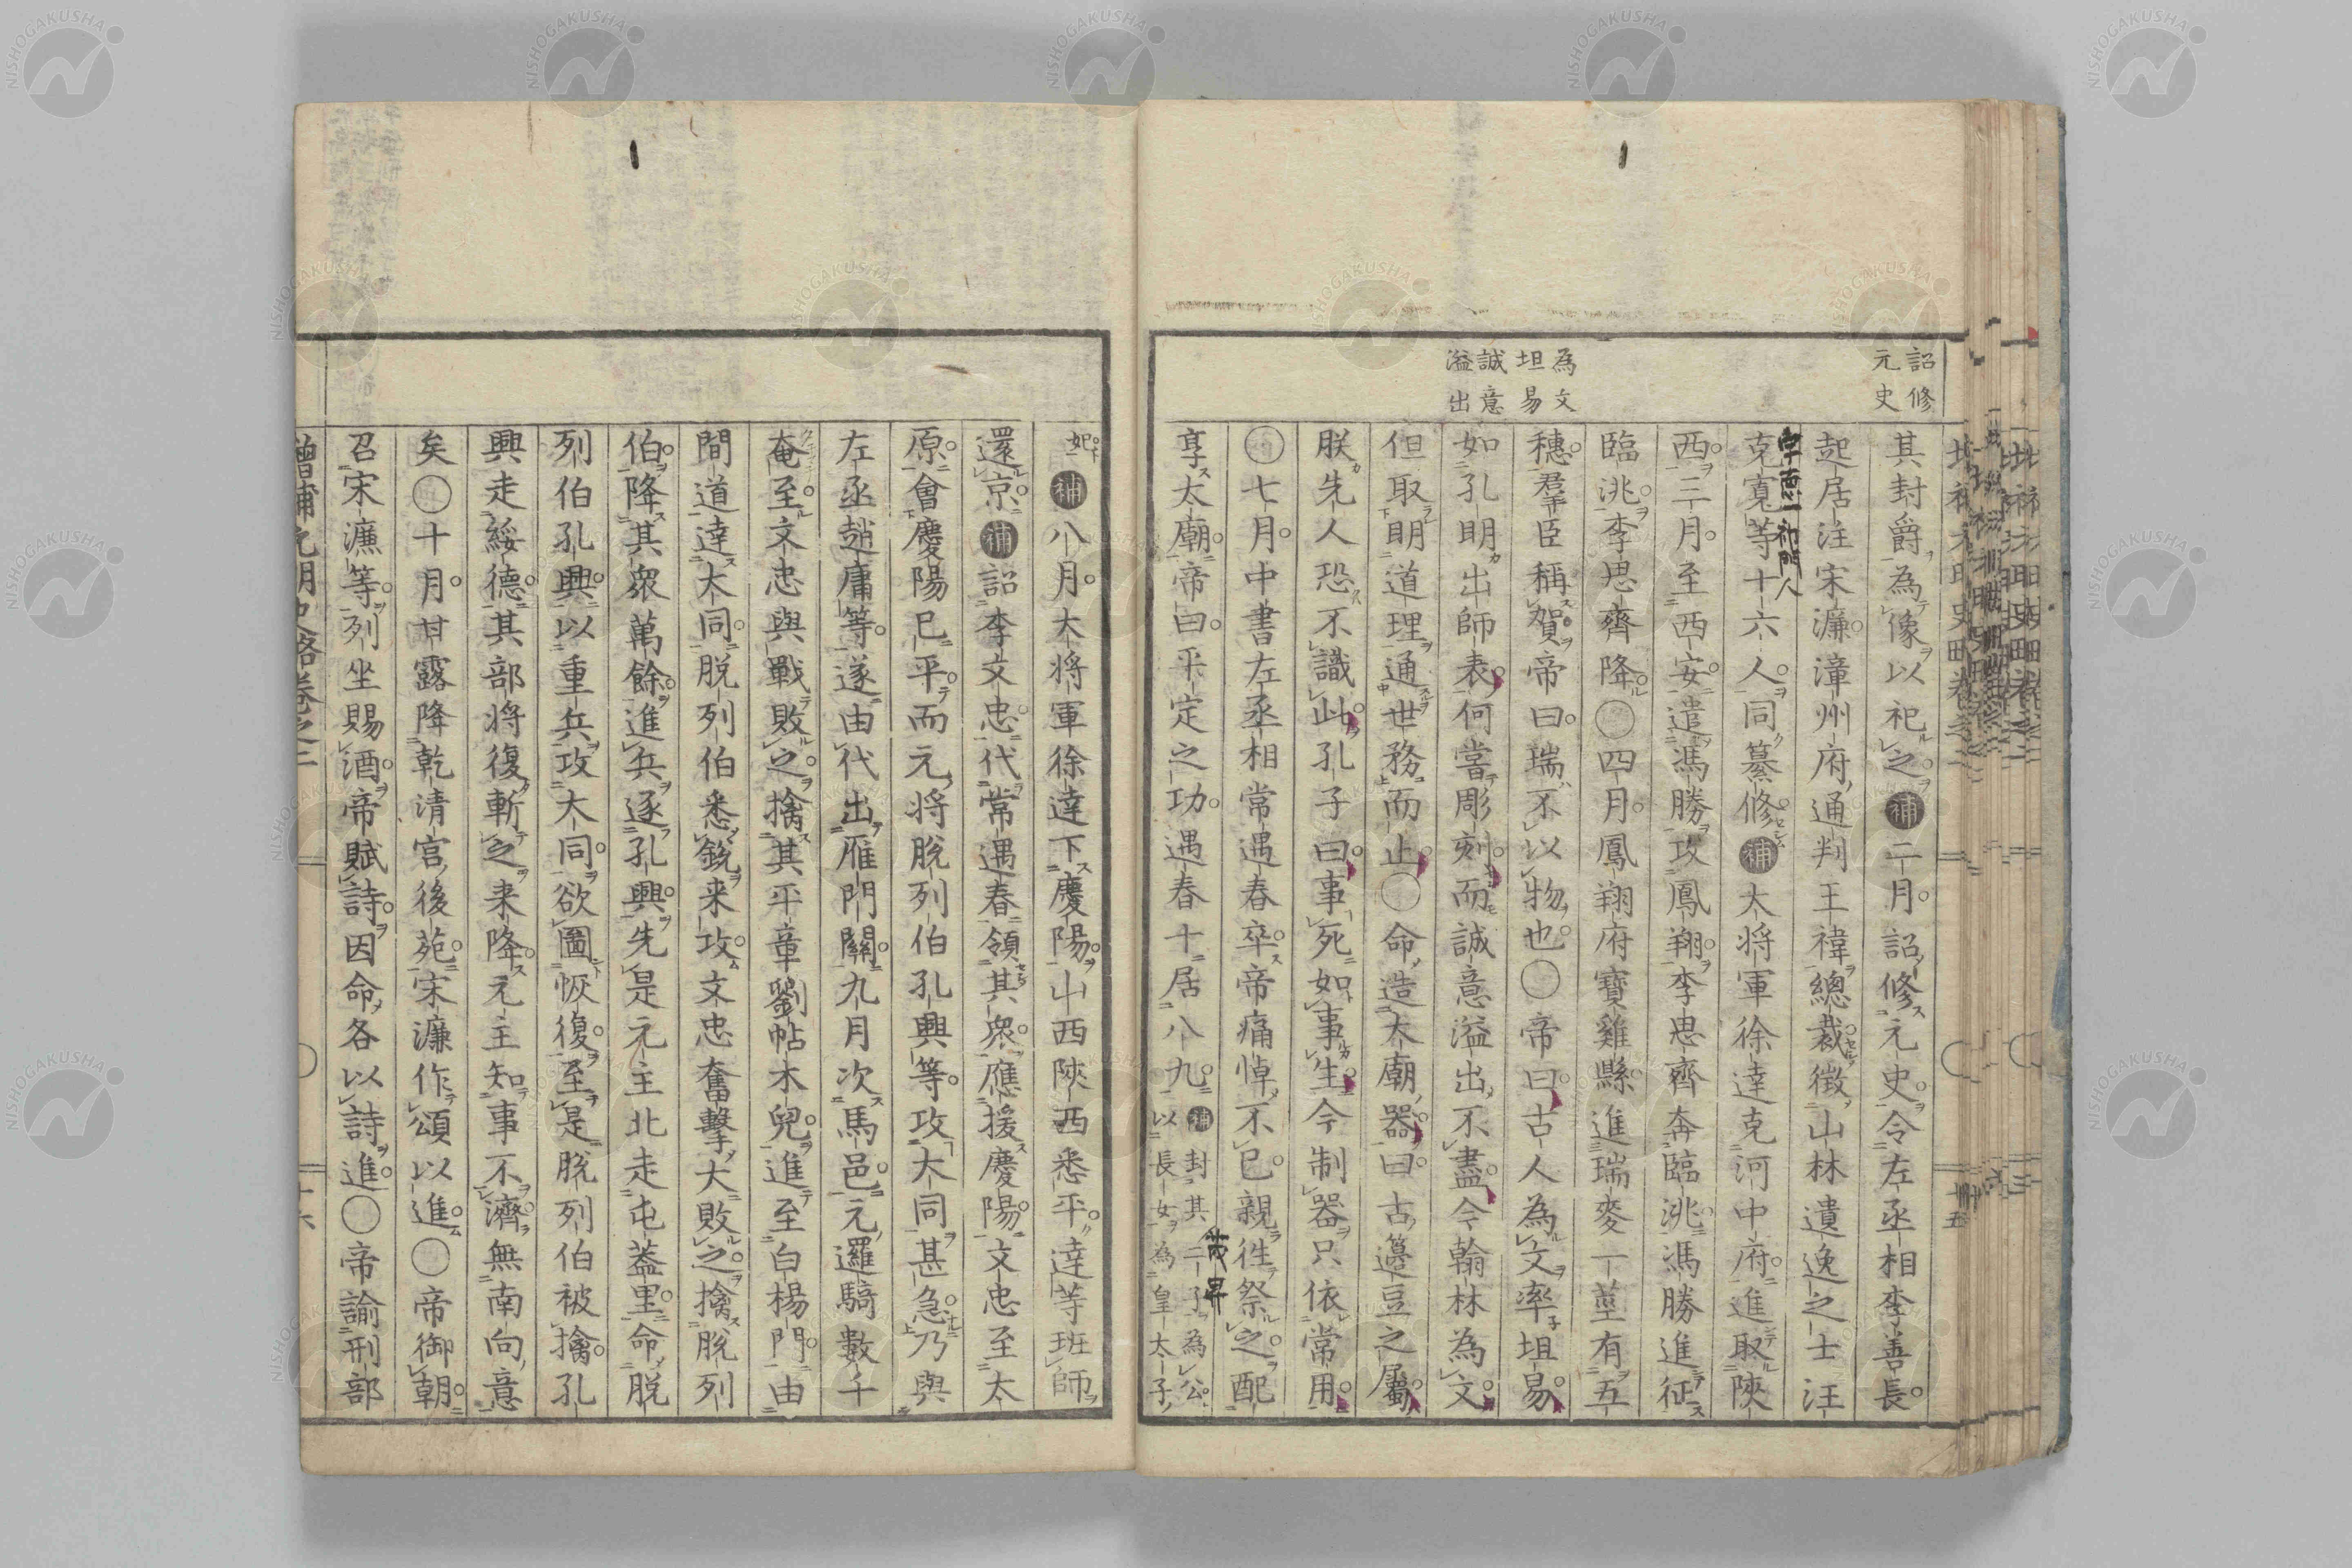 詔修
元史
為文
坦易
誠意
溢出
其封爵為像以祀之補二月詔修元史令左丞相李善長
起居注宋濂漳州府通判王禕總裁徵山林遺逸之士汪
克寬等十六人同纂修補大將軍徐達克河中府進取陝
字德一祁門人
西三月至西安遣馮勝攻鳳翔李思齊奔臨洮馮勝進征
臨洮李思齊降〇四月鳳翔府寶雞縣進瑞麥一莖有五
穗羣臣稱賀帝曰瑞不以物也〇帝曰古人為文率坦易
如孔明出師表何嘗彫刻而誠意溢出不盡今翰林為文
但取明道理通世務而止〇命造太廟器曰古籩豆之屬
朕先人恐不識此孔子曰事死如事生今制器只依常用
〇七月中書左丞相常遇春卒帝痛悼不已親徃祭之配
享太廟帝曰平定之功遇春十居八九補封其二子為公
以長女為皇太子
茂昇
妃補八月大将軍徐達下慶陽山西陝西悉平達等班師
還京補詔李文忠代常遇春領其衆應援慶陽文忠至太
原會慶陽已平而元将脱列伯孔興等攻大同甚急乃與
左丞趙庸等遂由代出雁門關九月次馬邑元邏騎數千
奄至文忠與戰敗之擒其平章劉帖木兒進至白楊門由
間道達大同脱列伯悉銳来攻文忠奮擊大敗之擒脱列
伯降其衆萬餘進兵逐孔興先是元主北走屯蓋里命脱
列伯孔興以重兵攻大同欲圖恢復至是脱列伯被擒孔
興走綏德其部将復斬之来降元主知事不濟無南向意
矣〇十月甘露降乾清宮後苑宋濂作頌以進〇帝御朝
召宋濂等列坐賜酒帝賦詩因命各以詩進〇帝諭刑部
增補元明史略卷之二
十六